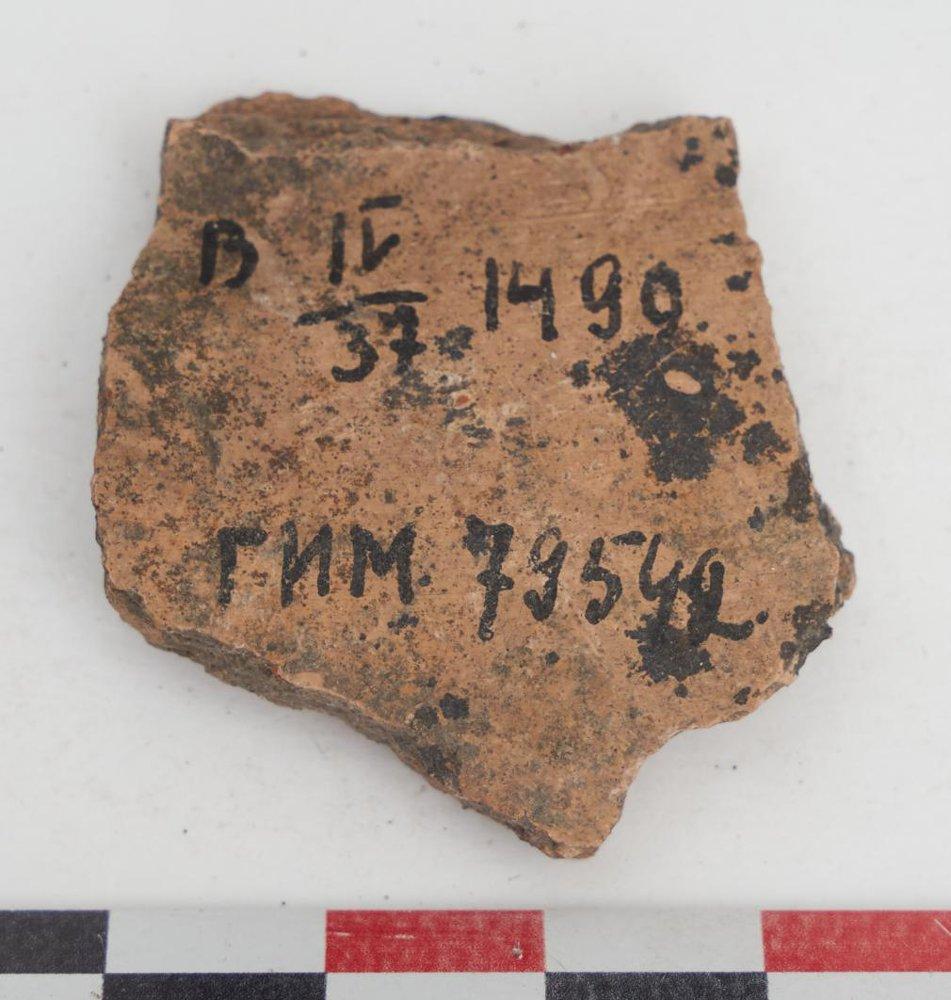 В IV/37 1490
ГИМ 79542.